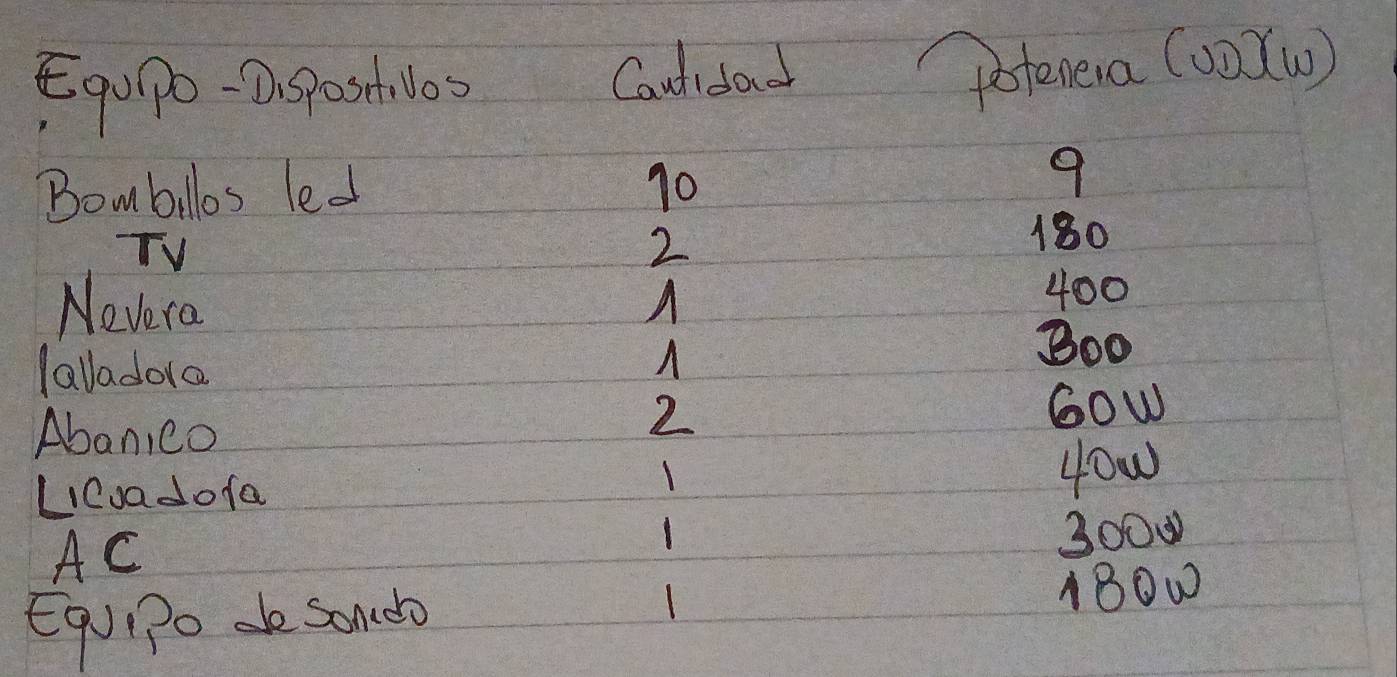 Equipo - Dispositivos Cantidad Potencia (UD)(W)
Bombillos led 10 9
TV 2 180
Nevera 1 400
lavadora 1 300
Abanico 2 60W
Licuadora 1 40W
AC 1 300W
Equipo de Sonido 1 180W